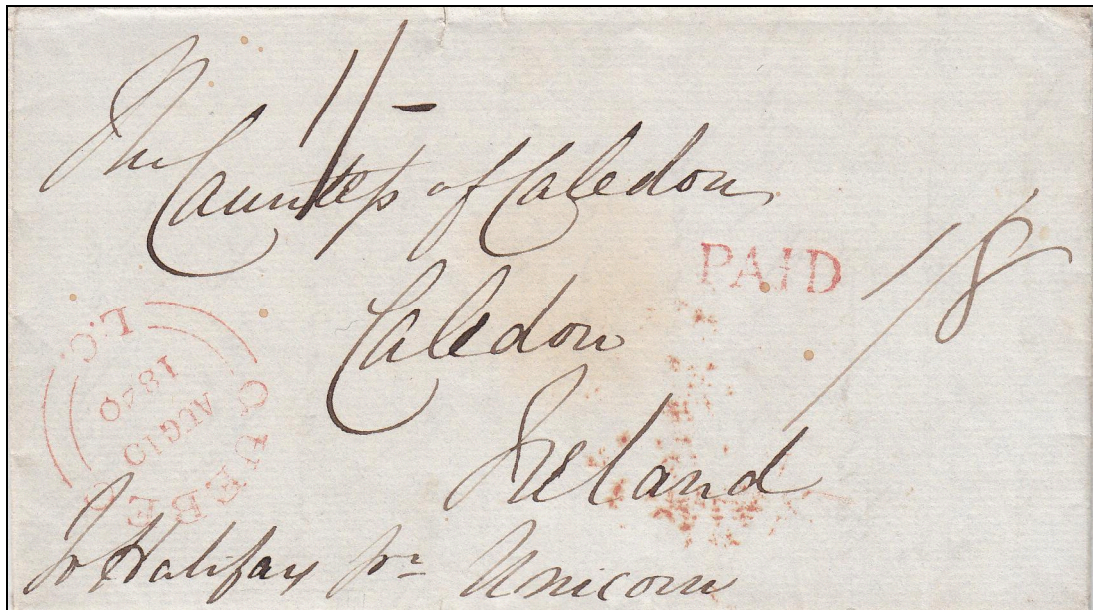 1/-
The
Countess of Caledon
PAID
1/8
Caledon
Ireland
QUEBEC
L.C.
AUG 10
1840
To Halifax pr Unicorn